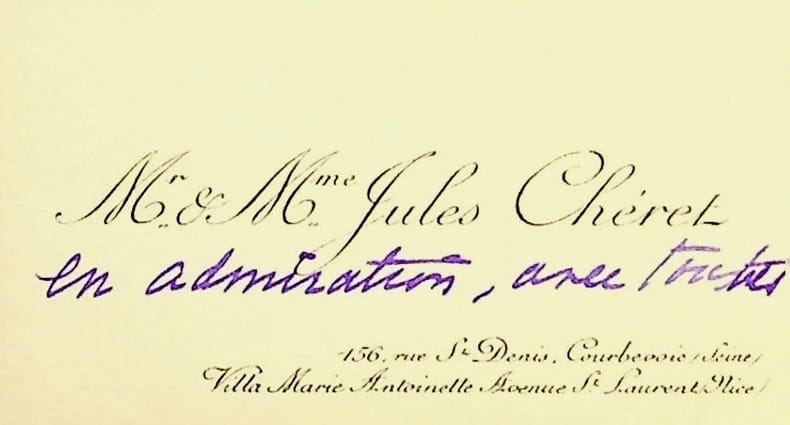 Mr. & Mme. Jules Chéret
en admiration, avec toutes
156, rue St. Denis, Courbevoie (Seine)
Villa Marie Antoinette Avenue St. Laurent (Nice)